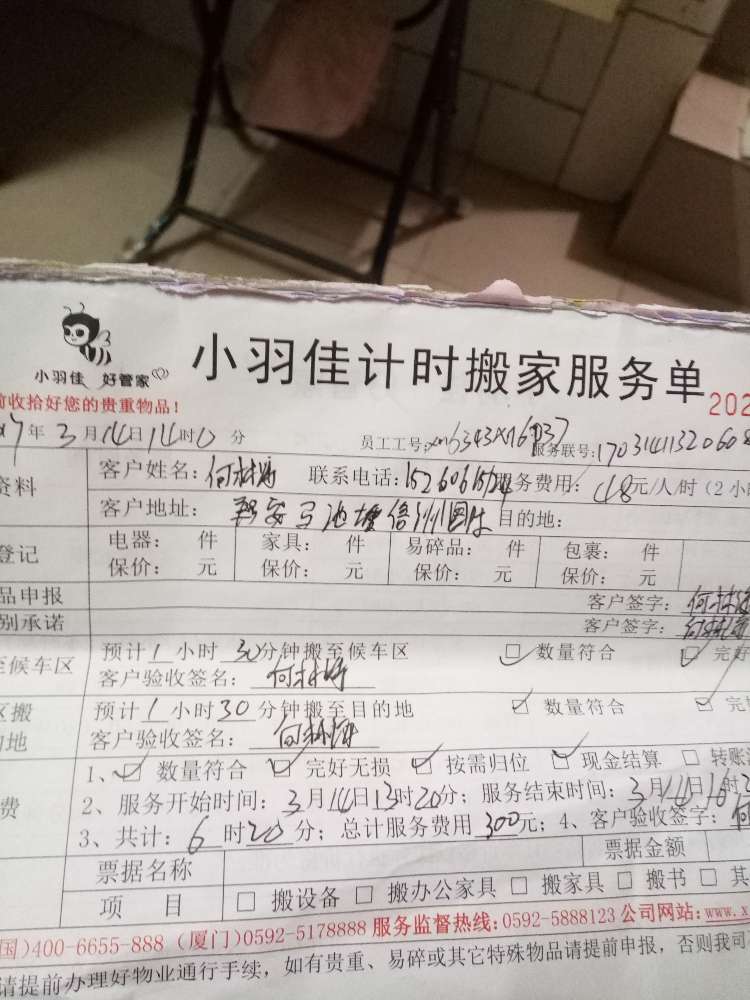 小羽佳 好管家
小羽佳计时搬家服务单
前收拾好您的贵重物品！
202
17年3月14日14时0分 员工工号: 服务联号:
资料 客户姓名: 何 联系电话: 服务费用: 48元/人/时（2小
客户地址: 目的地:
登记 电器: 件 家具: 件 易碎品: 件 包裹: 件
保价: 元 保价: 元 保价: 元 保价: 元
品申报 客户签字: 何
别承诺 客户签字: 何
至候车区 预计1小时30分钟搬至候车区 ☑ 数量符合 ☑ 完好
客户验收签名: 何
区搬 预计1小时30分钟搬至目的地 ☑ 数量符合 ☑ 完
的地 客户验收签名: 何
1、☑ 数量符合 ☑ 完好无损 ☑ 按需归位 ☑ 现金结算 □ 转账
费 2、服务开始时间: 3月14日13时20分; 服务结束时间: 3月14日16时2
3、共计: 6时20分; 总计服务费用300元; 4、客户验收签字: 何
票据名称 票据金额
项 目 □ 搬设备 □ 搬办公家具 □ 搬家具 □ 搬书 □ 其
国)400-6655-888 (厦门)0592-5178888 服务监督热线:0592-5888123 公司网站:www.x
请提前办理好物业通行手续，如有贵重、易碎或其它特殊物品请提前申报，否则我司